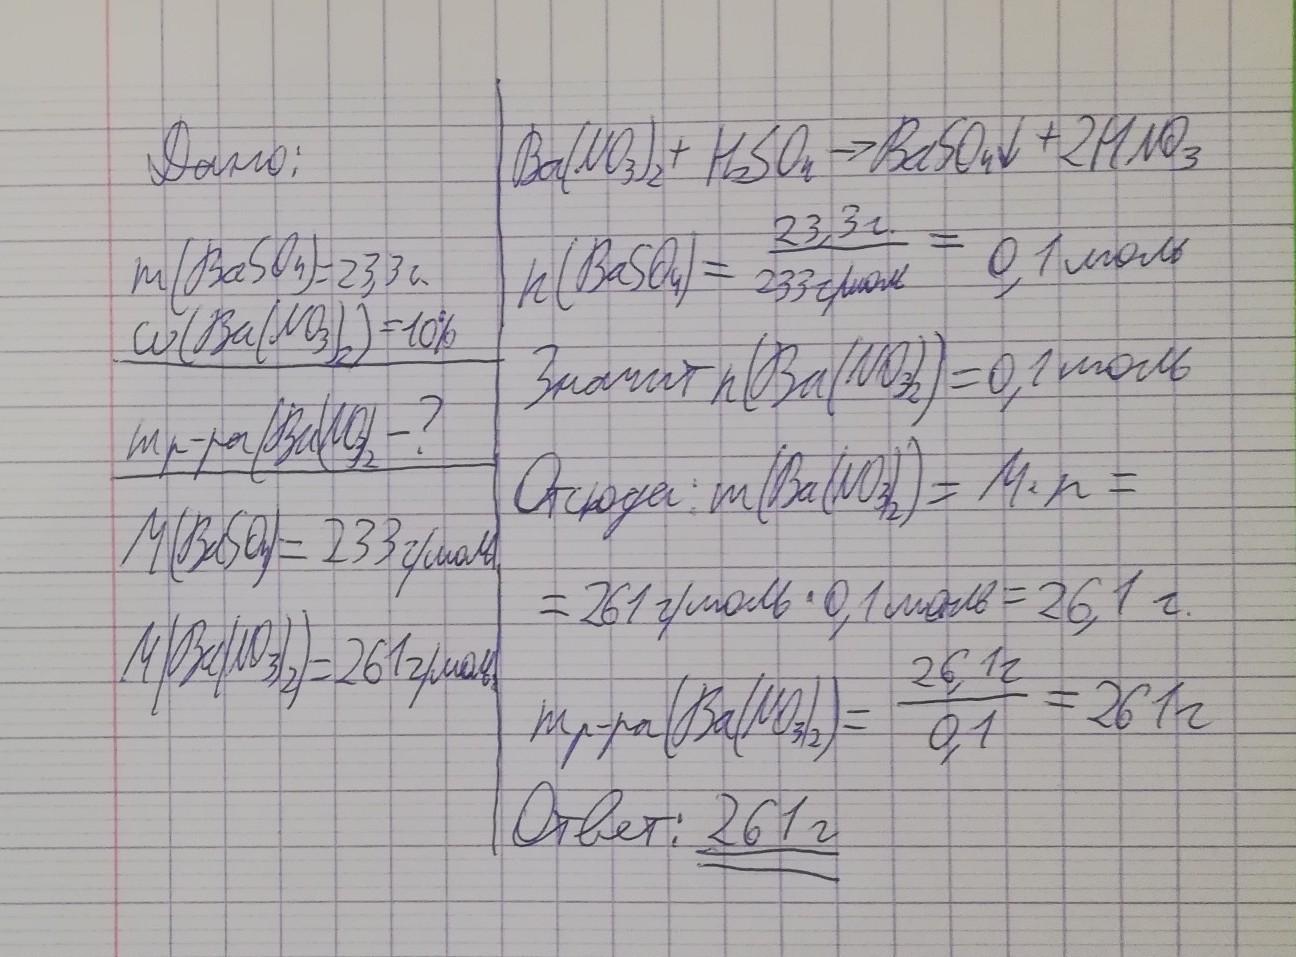 Дано:
m(BaSO₄)=23,3г.
ω(Ba(NO₃)₂)=10%
mр-ра(Ba(NO₃)₂-?
M(BaSO₄)=233г/моль
M(Ba(NO₃)₂)=261г/моль
Ba(NO₃)₂+H₂SO₄→BaSO₄↓+2HNO₃
n(BaSO₄)=23,3г./233г/моль=0,1моль
Значит n(Ba(NO₃)₂)=0,1моль
Отсюда: m(Ba(NO₃)₂)=M·n=
=261г/моль·0,1моль=26,1г.
mр-ра(Ba(NO₃)₂)=26,1г/0,1=261г
Ответ: 261г